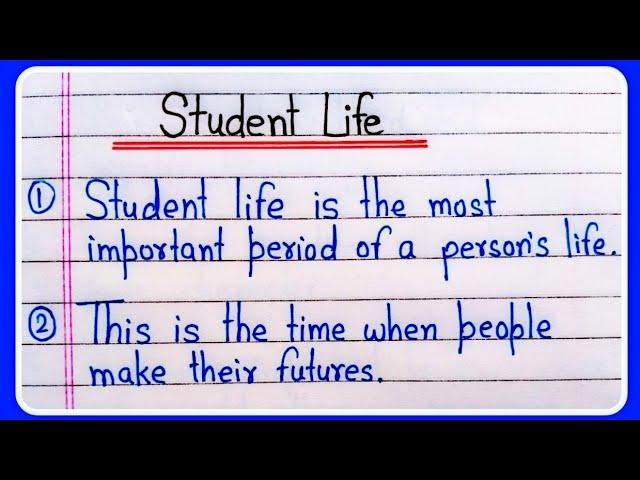 Student Life
① Student life is the most
important period of a person's life.
② This is the time when people
make their futures.